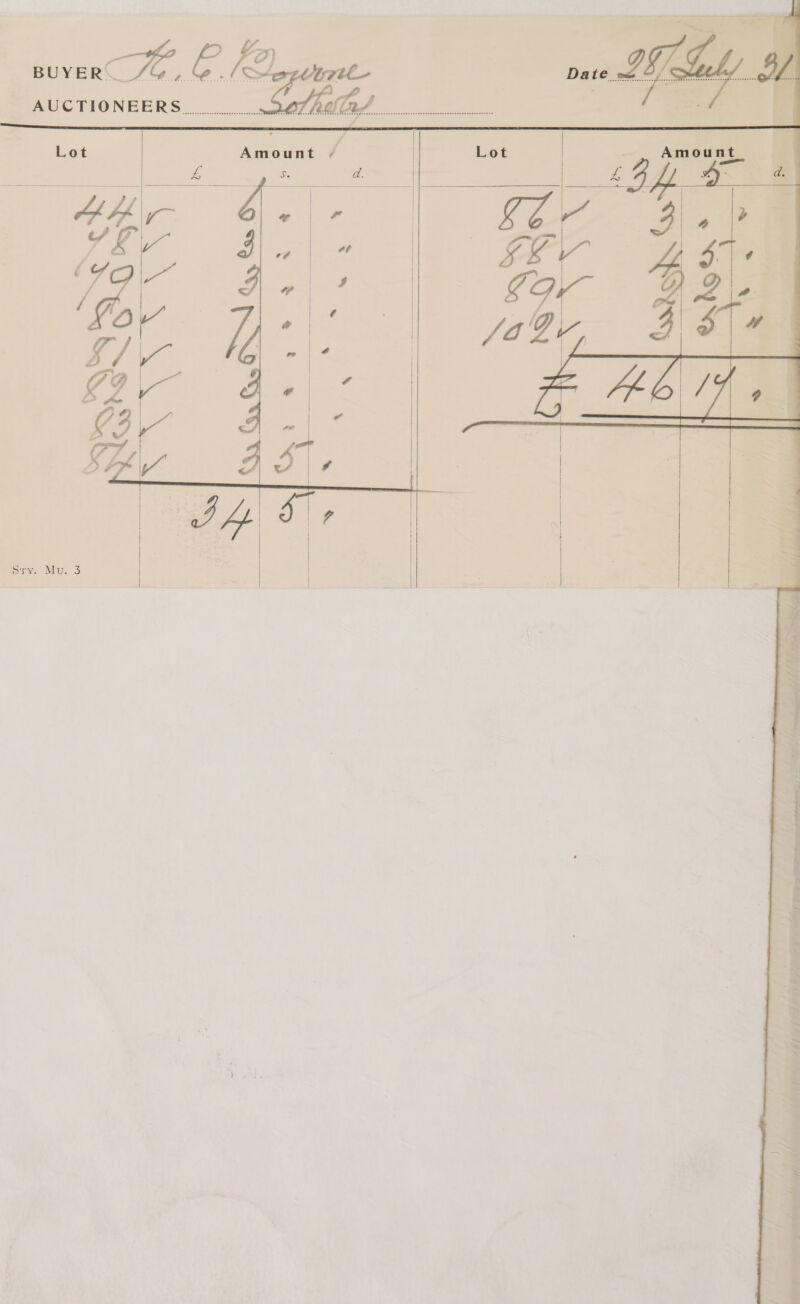 BUYER H. C.
Date 28/July/31
AUCTIONEERS Sotheby's
Lot Amount
£ s. d.
44 ✓ 6 " "
78 ✓ 3 " "
79 ✓ 3 " "
80 ✓ 7 " "
81 ✓ 6 " "
82 ✓ 3 " "
83 ✓ 3 " "
84 ✓ 3 5 "
34 5 "
Lot Amount
£ 34 5 d.
86 ✓ 3 " "
88 ✓ 4 5 "
89 ✓ 2 2 "
102 ✓ 3 5 "
£ 46 17 "
Sty. Mu. 3